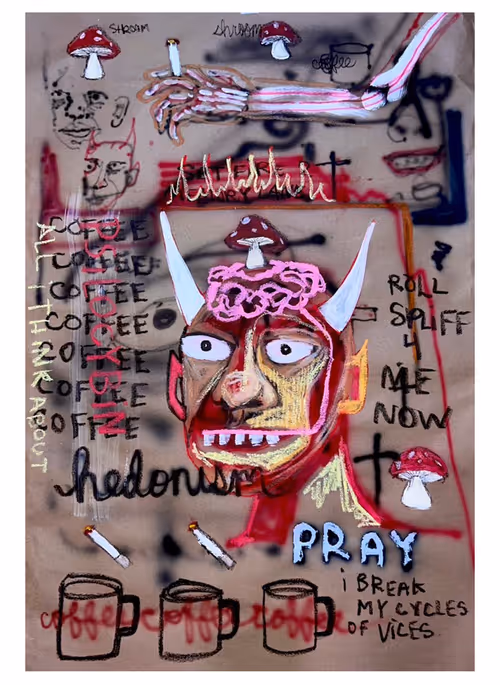 SHROOM
shroom
coffee
COFFEE
COFFEE
COFFEE
COFFEE
COFFEE
COFFEE
COFFEE
PSILOCYBIN
ALL I THINK ABOUT
ROLL
SPLIFF
4
ME
NOW
hedonism
PRAY
i BREAK
MY CYCLES
OF VICES
coffee coffee coffee